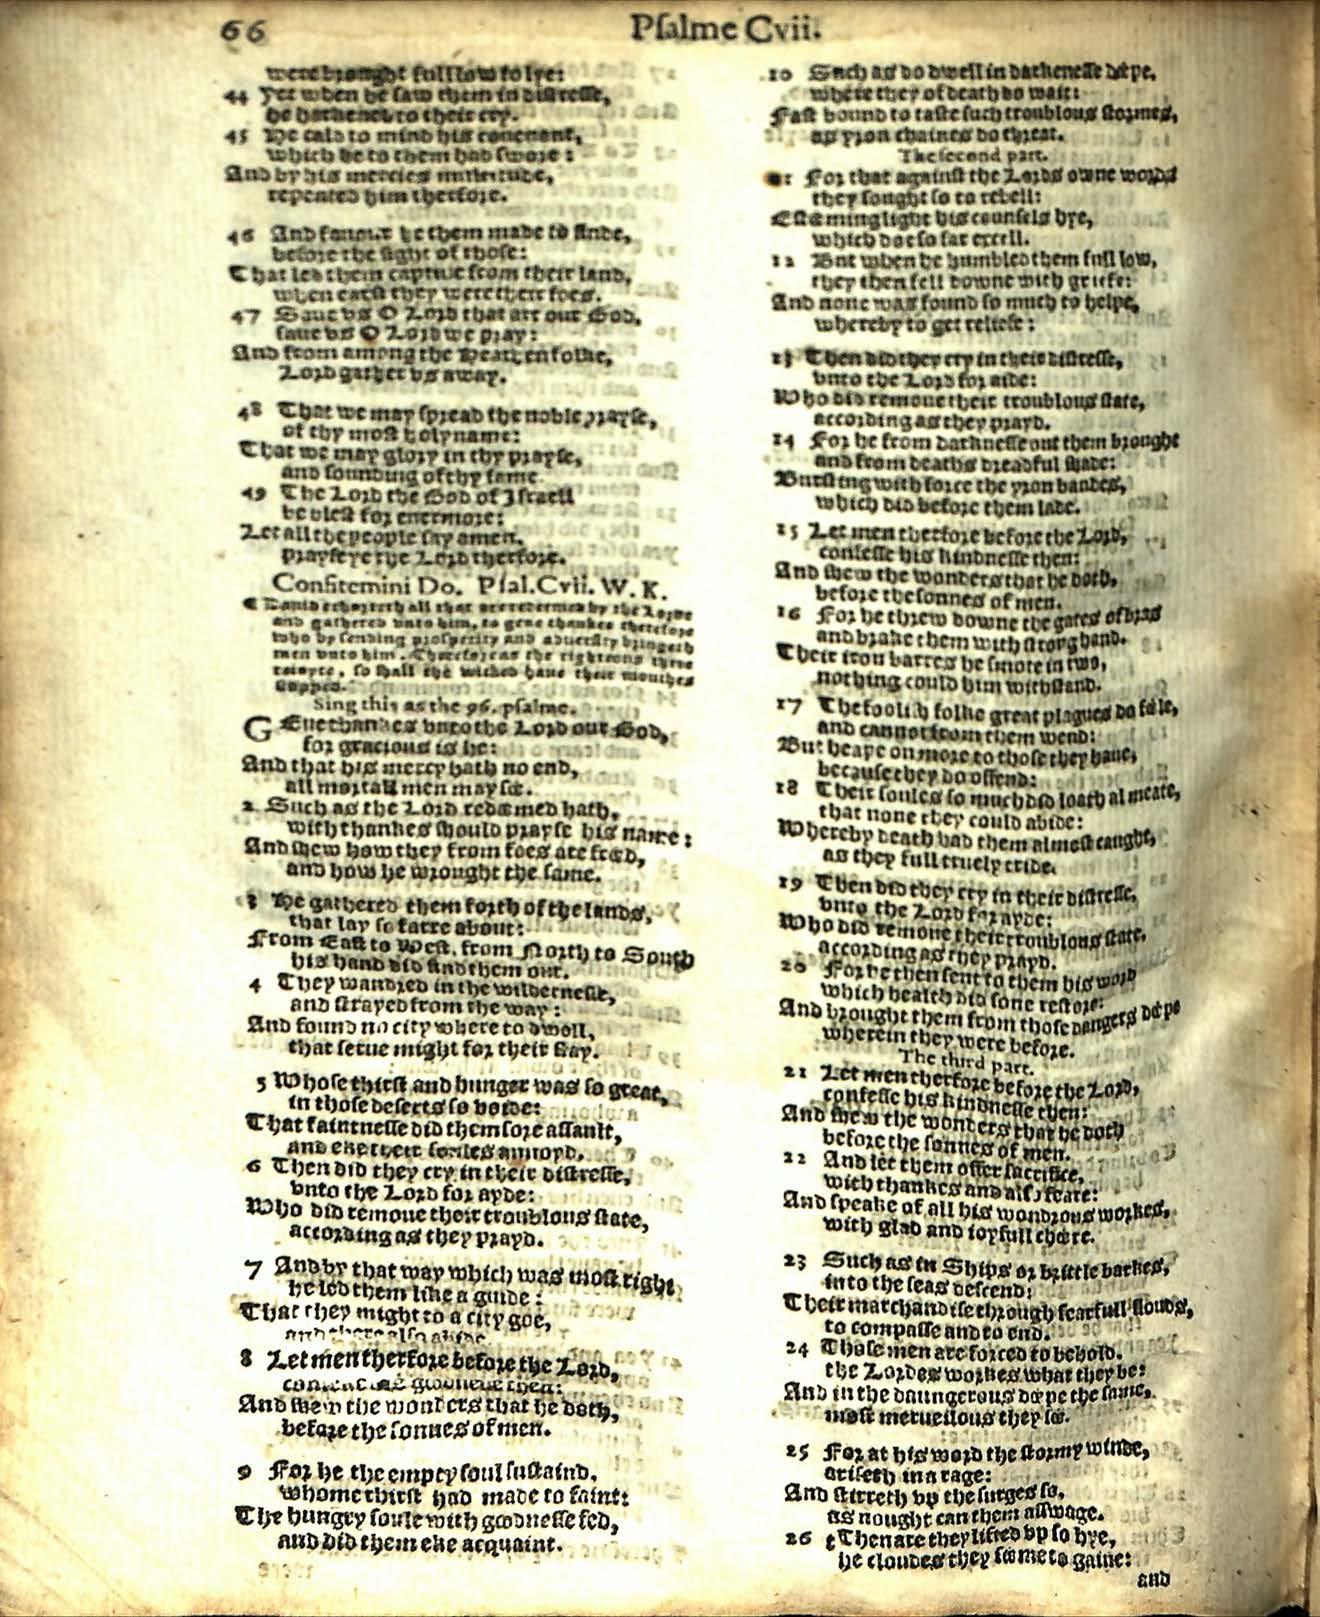 66
Pſalme Cvii.
were brought full low to lye:
44 Yet when he ſaw them in diſtreſſe,
he harkened to their cry.
45 He cald to mind his couenant,
which he to them had ſwore:
And by his mercies multitude,
repented him therfore.
46 And fauour he them made to finde,
before the ſight of thoſe:
That led them captiue from their land,
when earſt they were their foes.
47 Saue vs O Lord that art our God,
ſaue vs O Lord we pray:
And from among the Heathen folke,
Lord gather vs away.
48 That we may ſpread the noble prayſe,
of thy moſt holy name:
That we may glory in thy prayſe,
and ſounding of thy fame
49 The Lord the God of Iſraell
be bleſt for euermore:
Let all the people ſay amen,
prayſe ye the Lord therfore.
Confitemini Do. Pſal.Cvii. W. K.
¶ Dauid exhorteth all that are redeemed by the Lorde
and gathered vnto him, to geue thankes therefore
who by ſending proſperity and aduerſity bringeth
men vnto him. Therefore as the righteous therat
reioyce, ſo ſhall the wicked haue their mouthes
ſtopped.
Sing this as the 96. pſalme.
GEue thankes vnto the Lord our God,
for gracious is he:
And that his mercy hath no end,
all mortall men may ſee.
2 Such as the Lord redeemed hath,
with thankes ſhould prayſe his name:
And ſhew how they from foes are freed,
and how he wrought the ſame.
3 He gathered them forth of the lands,
that lay ſo farre about:
From Eaſt to Weſt, from North to South
his hand did find them out.
4 They wandred in the wilderneſſe,
and ſtrayed from the way:
And found no city where to dwell,
that ſerue might for their ſtay.
5 Whoſe thirſt and hunger was ſo great,
in thoſe deſerts ſo voide:
That faintneſſe did them ſore aſſault,
and eke their ſoules annoyd.
6 Then did they cry in their diſtreſſe,
vnto the Lord for ayde:
Who did remoue their troublous ſtate,
according as they prayd.
7 And by that way which was moſt right
he led them like a guide:
That they might to a city goe,
and there alſo abide
8 Let men therfore before the Lord,
confeſſe his goodneſſe then:
And ſhew the wonders that he doth,
before the ſonnes of men.
9 For he the empty ſoul ſuſtaind,
whome thirſt had made to faint:
The hungry ſoule with goodneſſe fed,
and did them eke acquaint.
10 Such as do dwell in darkeneſſe deepe,
where they of death do wait:
Faſt bound to taſte ſuch troublous ſtormes,
as yron chaines do threat.
The ſecond part.
11 For that againſt the Lords owne words
they ſought ſo to rebell:
Eſteeming light his counſels hye,
which doe ſo far excell.
12 But when he humbled them full low,
they then fell downe with griefe:
And none was found ſo much to helpe,
whereby to get reliefe:
13 Then did they cry in their diſtreſſe,
vnto the Lord for aide:
Who did remoue their troublous ſtate,
according as they prayd.
14 For he from darkneſſe out them brought
and from deaths dreadful ſhade:
Burſting with force the yron bandes,
which did before them lade.
15 Let men therfore before the Lord,
confeſſe his kindneſſe then:
And ſhew the wonders that he doth,
before the ſonnes of men.
16 For he threw downe the gates of bras
and brake them with ſtrong hand.
Their iron barres he ſmote in two,
nothing could him withſtand.
17 The fooliſh folke great plagues do feele,
and cannot from them wend:
But heape on more to thoſe they haue,
becauſe they do offend:
18 Their ſoules ſo much did loath al meate,
that none they could abide:
Whereby death had them almoſt caught,
as they full truely tride.
19 Then did they cry in their diſtreſſe,
vnto the Lord for ayde:
Who did remoue their troublous ſtate,
according as they prayd.
20 For he then ſent to them his word
which health did ſone reſtore:
And brought them from thoſe dangers deepe
wherein they were before.
The third part.
21 Let men therfore before the Lord,
confeſſe his kindneſſe then:
And ſhew the wonders that he doth
before the ſonnes of men.
22 And let them offer ſacrifice,
with thankes and alſo feare:
And ſpeake of all his wondrous workes,
with glad and ioyfull cheere.
23 Such as in Ships or brittle barkes,
into the ſeas deſcend:
Their marchandiſe through fearfull floods,
to compaſſe and to end.
24 Thoſe men are forced to behold,
the Lordes workes what they be:
And in the daungerous deepe the ſame,
moſt meruellous they ſee.
25 For at his word the ſtormy winde,
ariſeth in a rage:
And ſtirreth vp the ſurges ſo,
as nought can them aſſwage.
26 Then are they lifted vp ſo hye,
he cloudes they ſeeme to gaine:
and